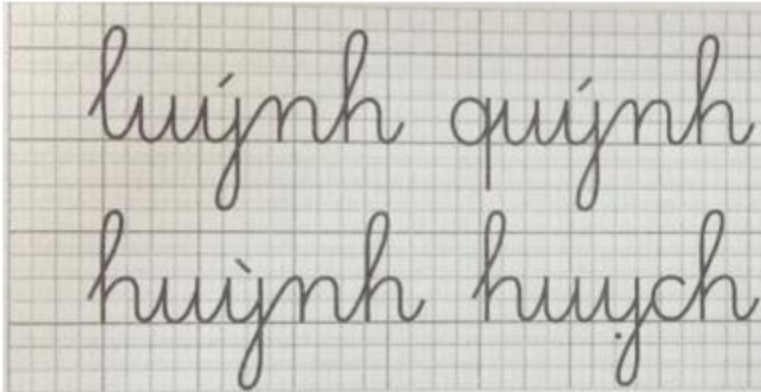 luýnh quýnh
huỳnh huỵch